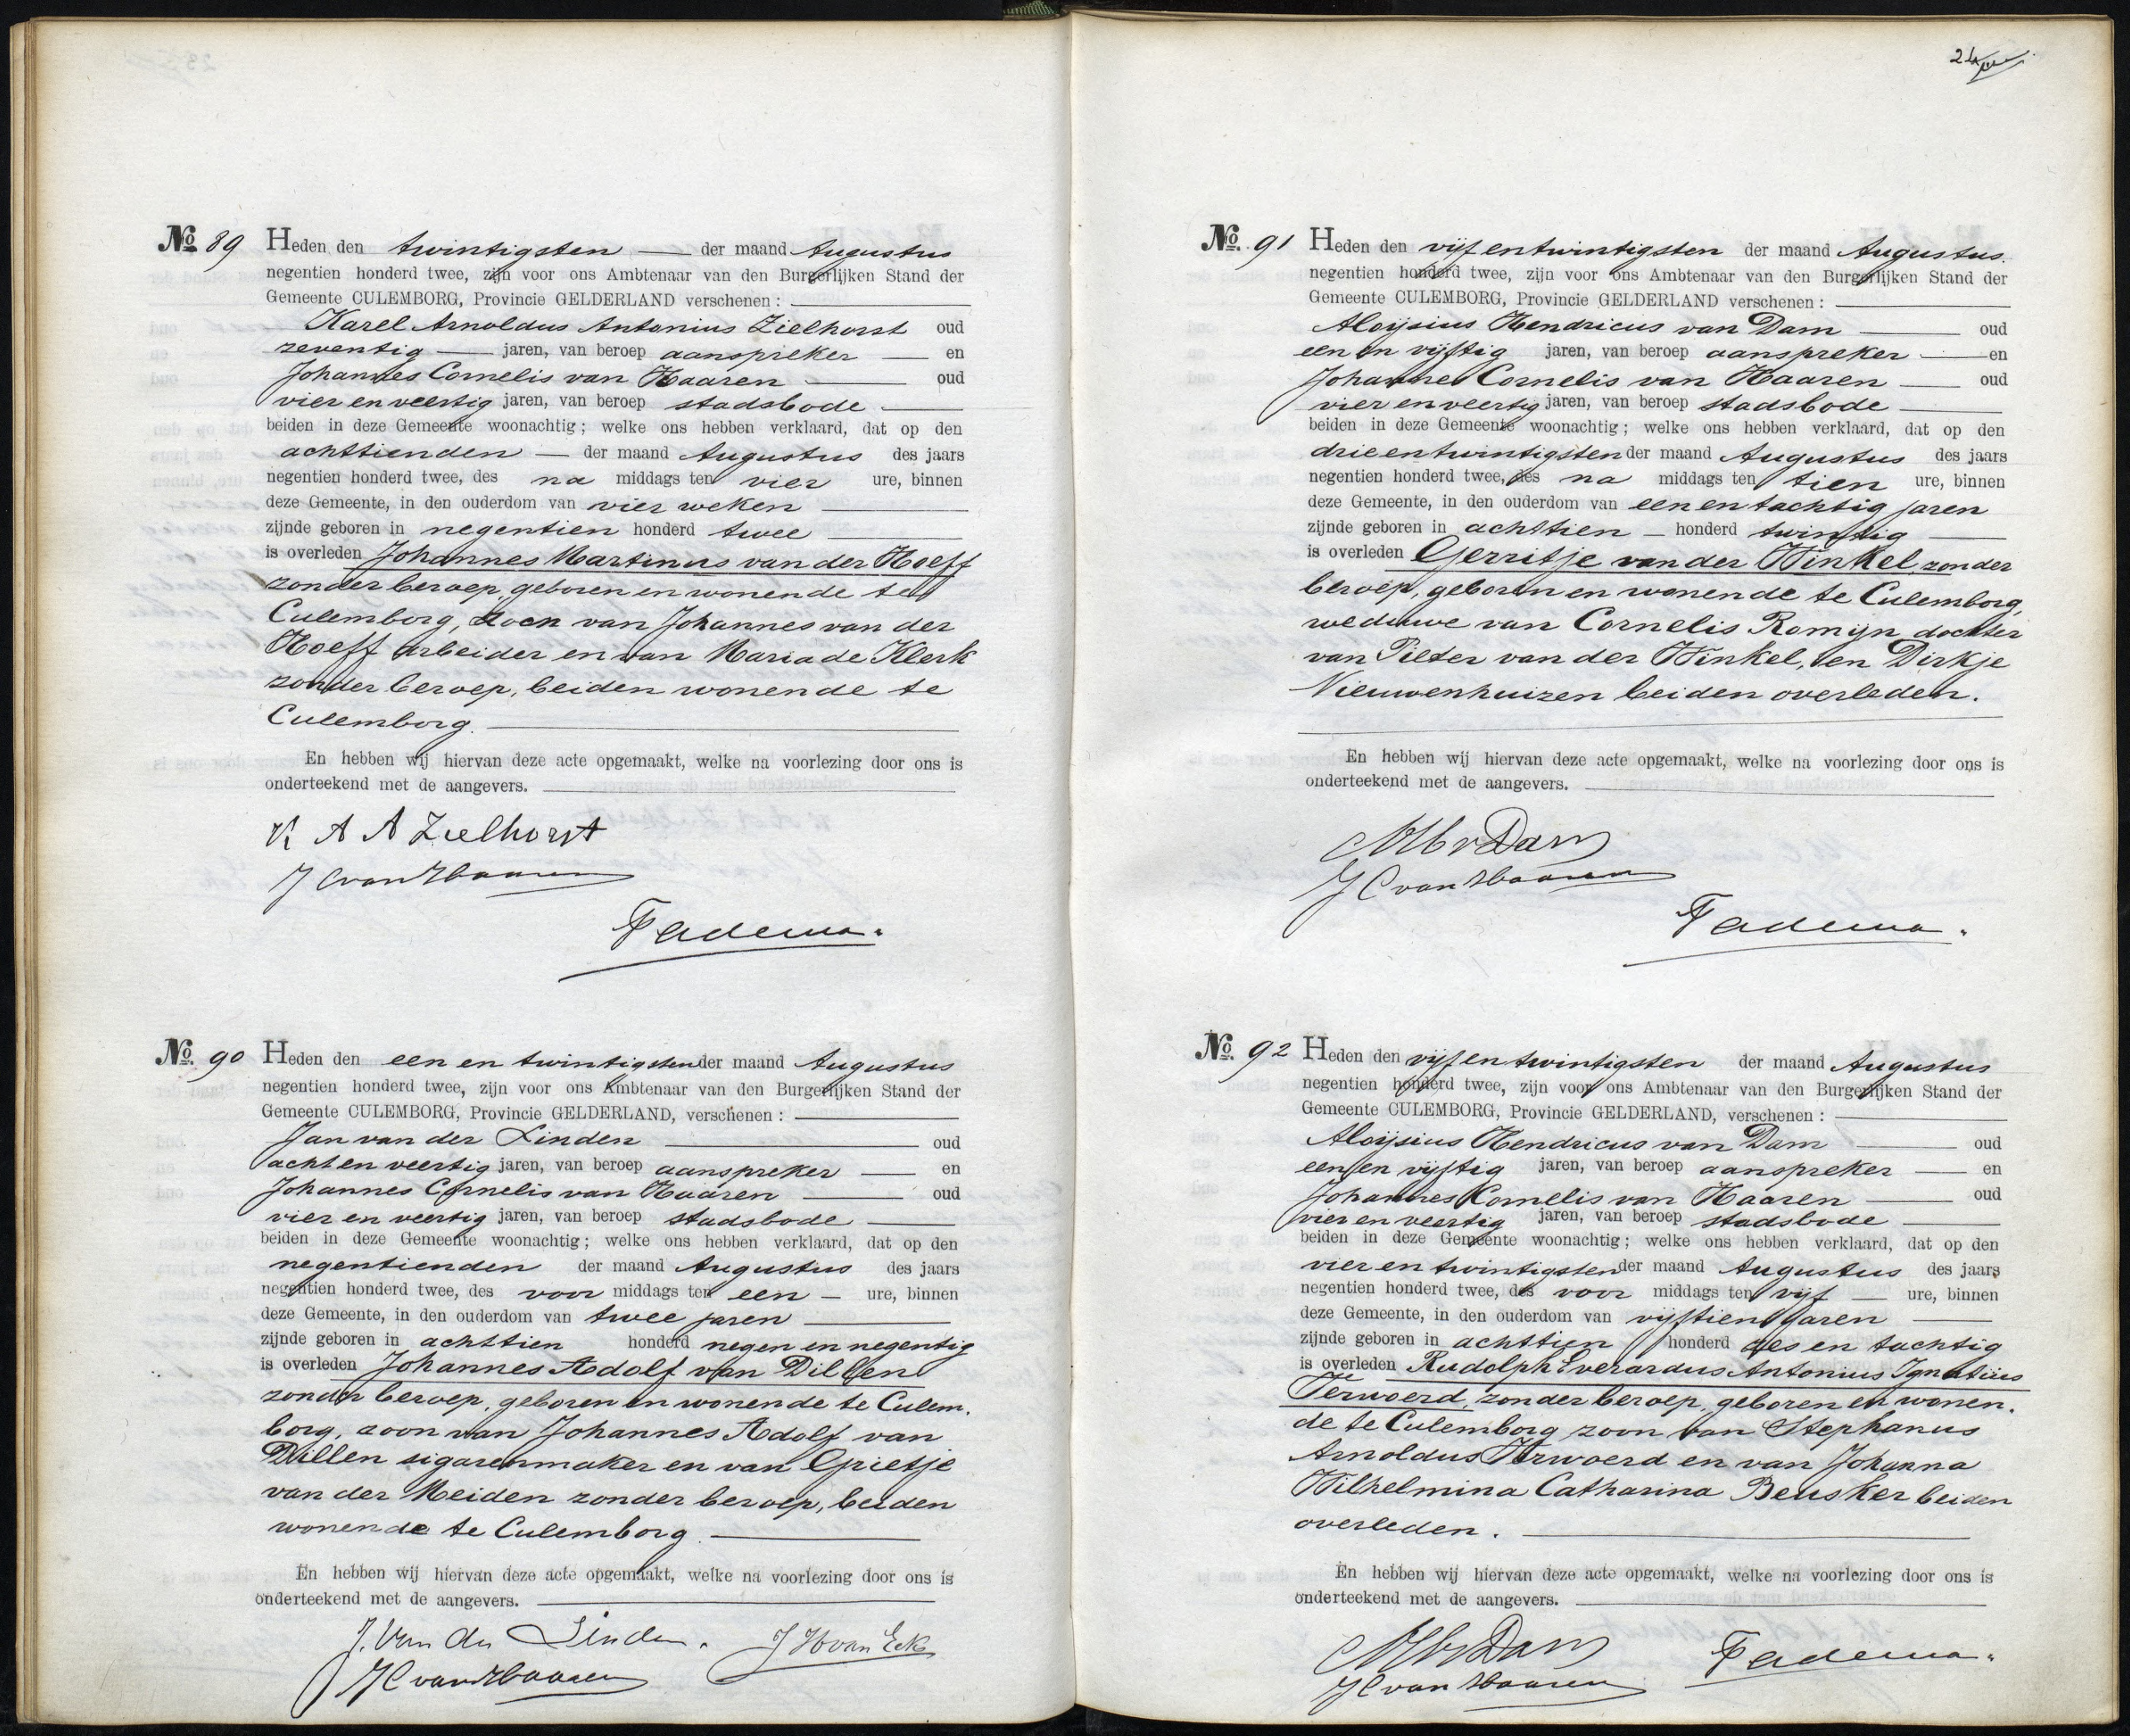 No. 89 Heden den twintigsten der maand Augustus
negentien honderd twee, zijn voor ons Ambtenaar van den Burgerlijken Stand der
Gemeente CULEMBORG, Provincie GELDERLAND verschenen :
Karel Arnoldus Antonius Zielhorst oud
zeventig jaren, van beroep aanspreker en
Johannes Cornelis van Haaren oud
vier en veertig jaren, van beroep stadsbode
beiden in deze Gemeente woonachtig; welke ons hebben verklaard, dat op den
achttienden der maand Augustus des jaars
negentien honderd twee, des na middags ten vier ure, binnen
deze Gemeente, in den ouderdom van vier weken
zijnde geboren in negentien honderd twee
is overleden Johannes Martinus van der Hoeff
zonder beroep, geboren en wonende te
Culemborg, zoon van Johannes van der
Hoeff arbeider en van Maria de Klerk
zonder beroep, beiden wonende te
Culemborg.
En hebben wij hiervan deze acte opgemaakt, welke na voorlezing door ons is
onderteekend met de aangevers.
K A A Zielhorst
J C van Haaren
Fadema.
No. 90 Heden den een en twintigsten der maand Augustus
negentien honderd twee, zijn voor ons Ambtenaar van den Burgerlijken Stand der
Gemeente CULEMBORG, Provincie GELDERLAND, verschenen :
Jan van der Linden oud
acht en veertig jaren, van beroep aanspreker en
Johannes Cornelis van Haaren oud
vier en veertig jaren, van beroep stadsbode
beiden in deze Gemeente woonachtig; welke ons hebben verklaard, dat op den
negentienden der maand Augustus des jaars
negentien honderd twee, des voor middags ten een ure, binnen
deze Gemeente, in den ouderdom van twee jaren
zijnde geboren in achttien honderd negen en negentig
is overleden Johannes Adolf van Dillen
zonder beroep, geboren en wonende te Culem.
borg, zoon van Johannes Adolf van
Dillen sigarenmaker en van Grietje
van der Meiden zonder beroep, beiden
wonende te Culemborg.
En hebben wij hiervan deze acte opgemaakt, welke na voorlezing door ons is
onderteekend met de aangevers.
J. Van der Linden. J H van Eck
J C van Haaren
24
No. 91 Heden den vijf en twintigsten der maand Augustus.
negentien honderd twee, zijn voor ons Ambtenaar van den Burgerlijken Stand der
Gemeente CULEMBORG, Provincie GELDERLAND verschenen :
Aloijsius Hendricus van Dam oud
een en vijftig jaren, van beroep aanspreker en
Johannes Cornelis van Haaren oud
vier en veertig jaren, van beroep stadsbode
beiden in deze Gemeente woonachtig; welke ons hebben verklaard, dat op den
drie en twintigsten der maand Augustus des jaars
negentien honderd twee, des na middags ten tien ure, binnen
deze Gemeente, in den ouderdom van een en tachtig jaren
zijnde geboren in achttien honderd twintig
is overleden Gerritje van der Winkel, zonder
beroep, geboren en wonende te Culemborg,
weduwe van Cornelis Romijn dochter
van Pieter van der Winkel, en Dirkje
Nieuwenhuizen beiden overleden.
En hebben wij hiervan deze acte opgemaakt, welke na voorlezing door ons is
onderteekend met de aangevers.
v Dam
J C van Haaren
Fadema.
No. 92 Heden den vijf en twintigsten der maand Augustus
negentien honderd twee, zijn voor ons Ambtenaar van den Burgerlijken Stand der
Gemeente CULEMBORG, Provincie GELDERLAND, verschenen :
Aloijsius Hendricus van Dam oud
een en vijftig jaren, van beroep aanspreker en
Johannes Cornelis van Haaren oud
vier en veertig jaren, van beroep stadsbode
beiden in deze Gemeente woonachtig; welke ons hebben verklaard, dat op den
vier en twintigsten der maand Augustus des jaars
negentien honderd twee, des voor middags ten vijf ure, binnen
deze Gemeente, in den ouderdom van vijftien jaren
zijnde geboren in achttien honderd zes en tachtig
is overleden Rudolph Everardus Antonius Ignatius
Terwoerd, zonder beroep, geboren en wonen.
de te Culemborg zoon van Stephanus
Arnoldus Terwoerd en van Johanna
Wilhelmina Catharina Beusker beiden
overleden.
En hebben wij hiervan deze acte opgemaakt, welke na voorlezing door ons is
onderteekend met de aangevers.
v Dam Fadema.
J C van Haaren